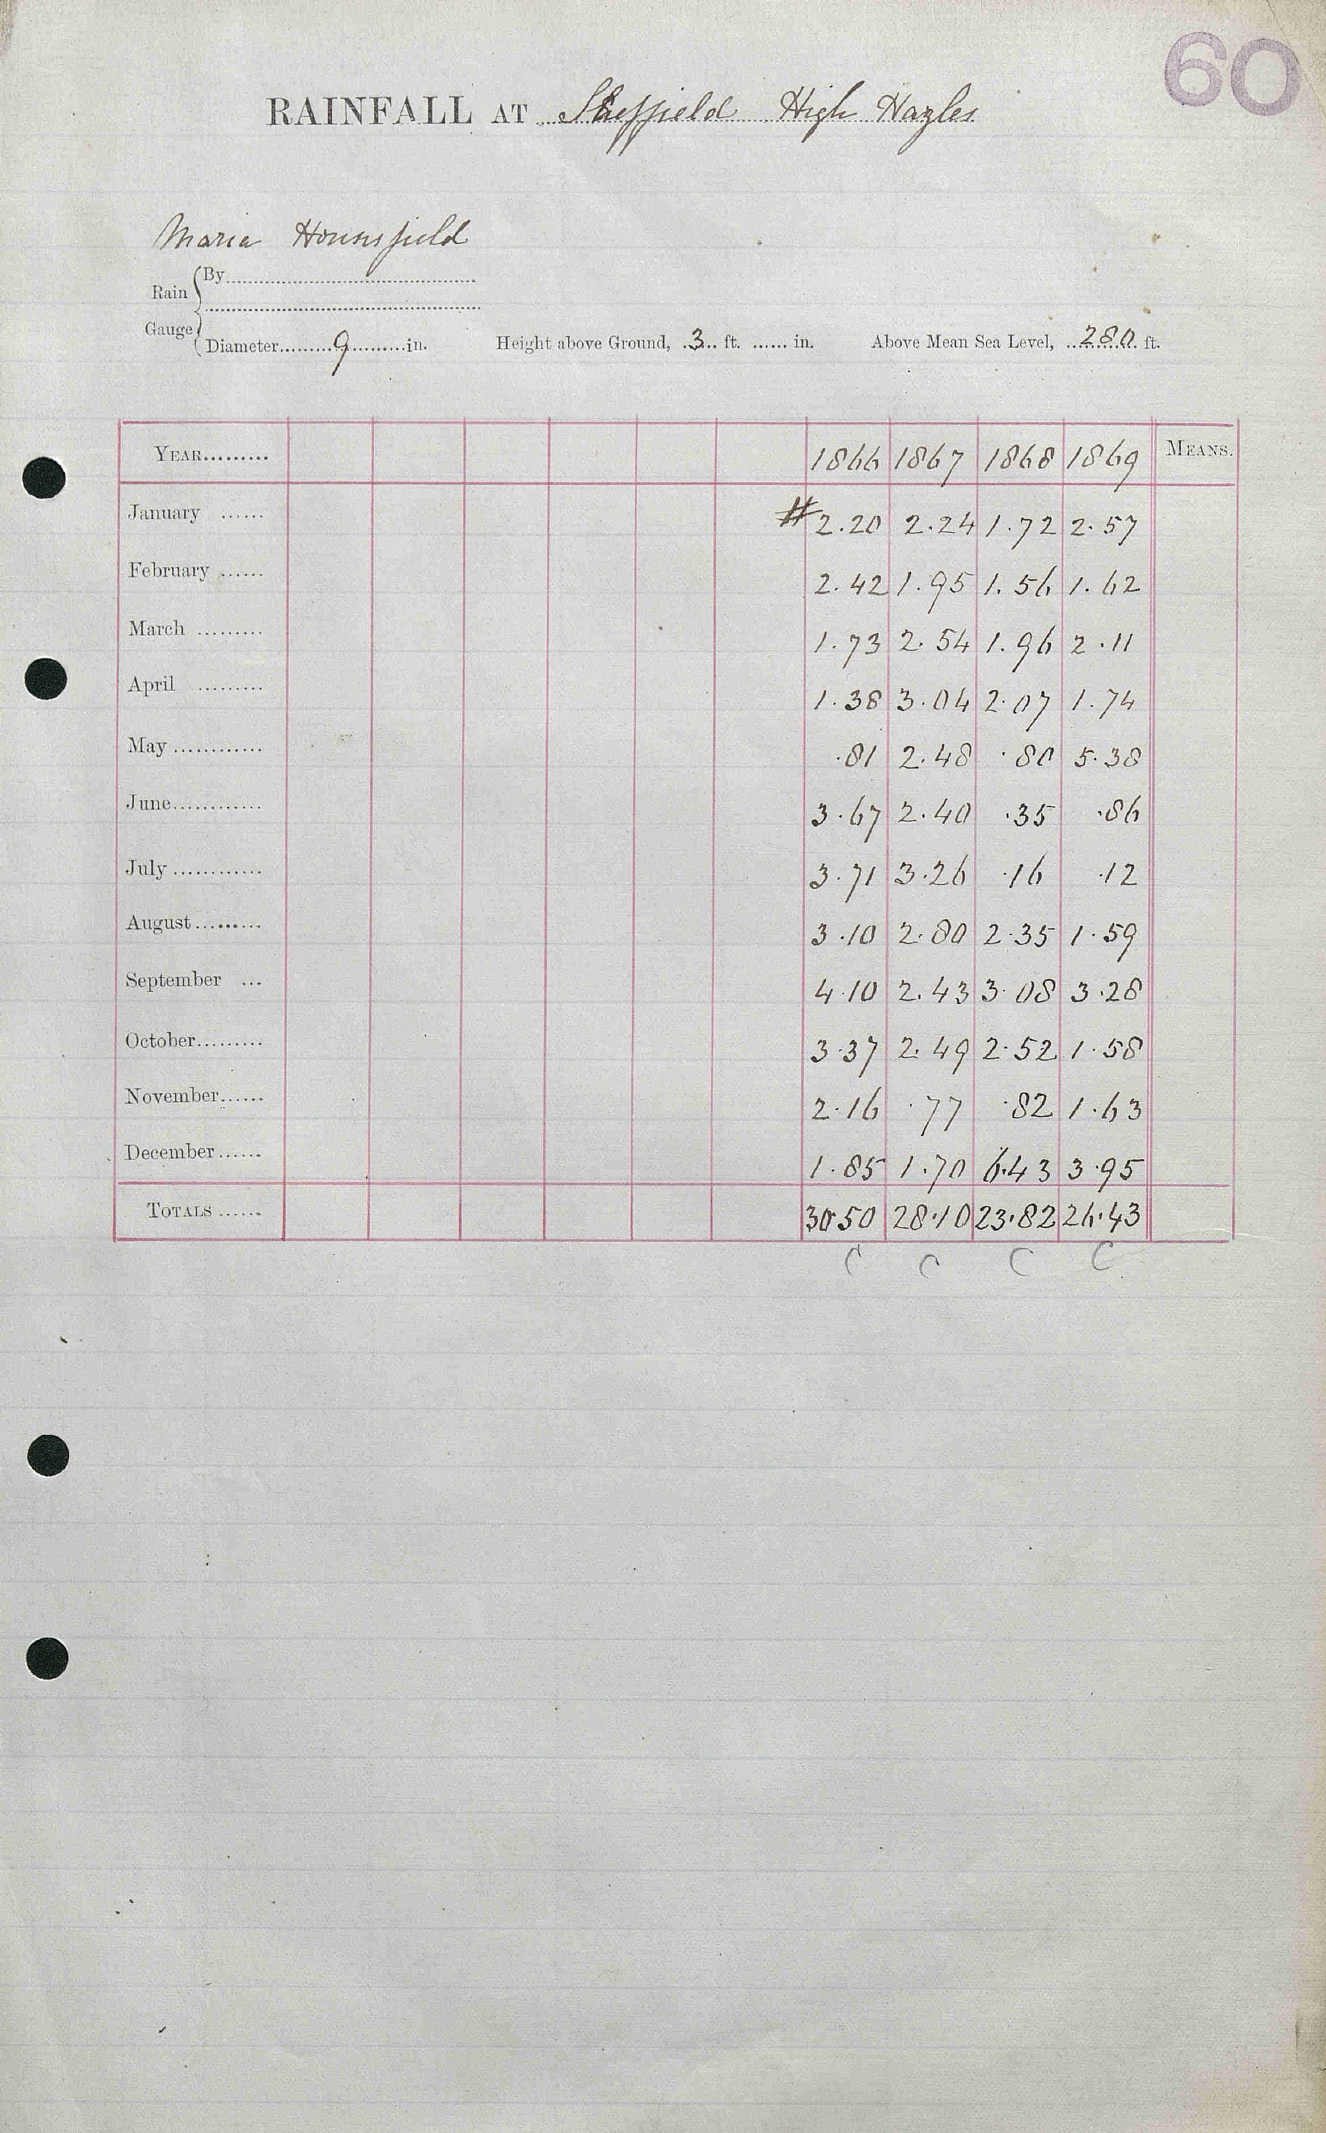 60
RAINFALL AT Sheffield High Hazles
Maria Hounsfield
Rain Gauge { By
Diameter 9 in. Height above Ground, 3 ft. in. Above Mean Sea Level, 280 ft.
YEAR 1866 1867 1868 1869 MEANS.
January # 2.20 2.24 1.72 2.57
February 2.42 1.95 1.56 1.62
March 1.73 2.54 1.96 2.11
April 1.38 3.04 2.07 1.74
May .81 2.48 .80 5.38
June 3.67 2.40 .35 .86
July 3.71 3.26 .16 .12
August 3.10 2.80 2.35 1.59
September 4.10 2.43 3.08 3.28
October 3.37 2.49 2.52 1.58
November 2.16 .77 .82 1.63
December 1.85 1.70 6.43 3.95
TOTALS 30.50 28.10 23.82 26.43
C C C C